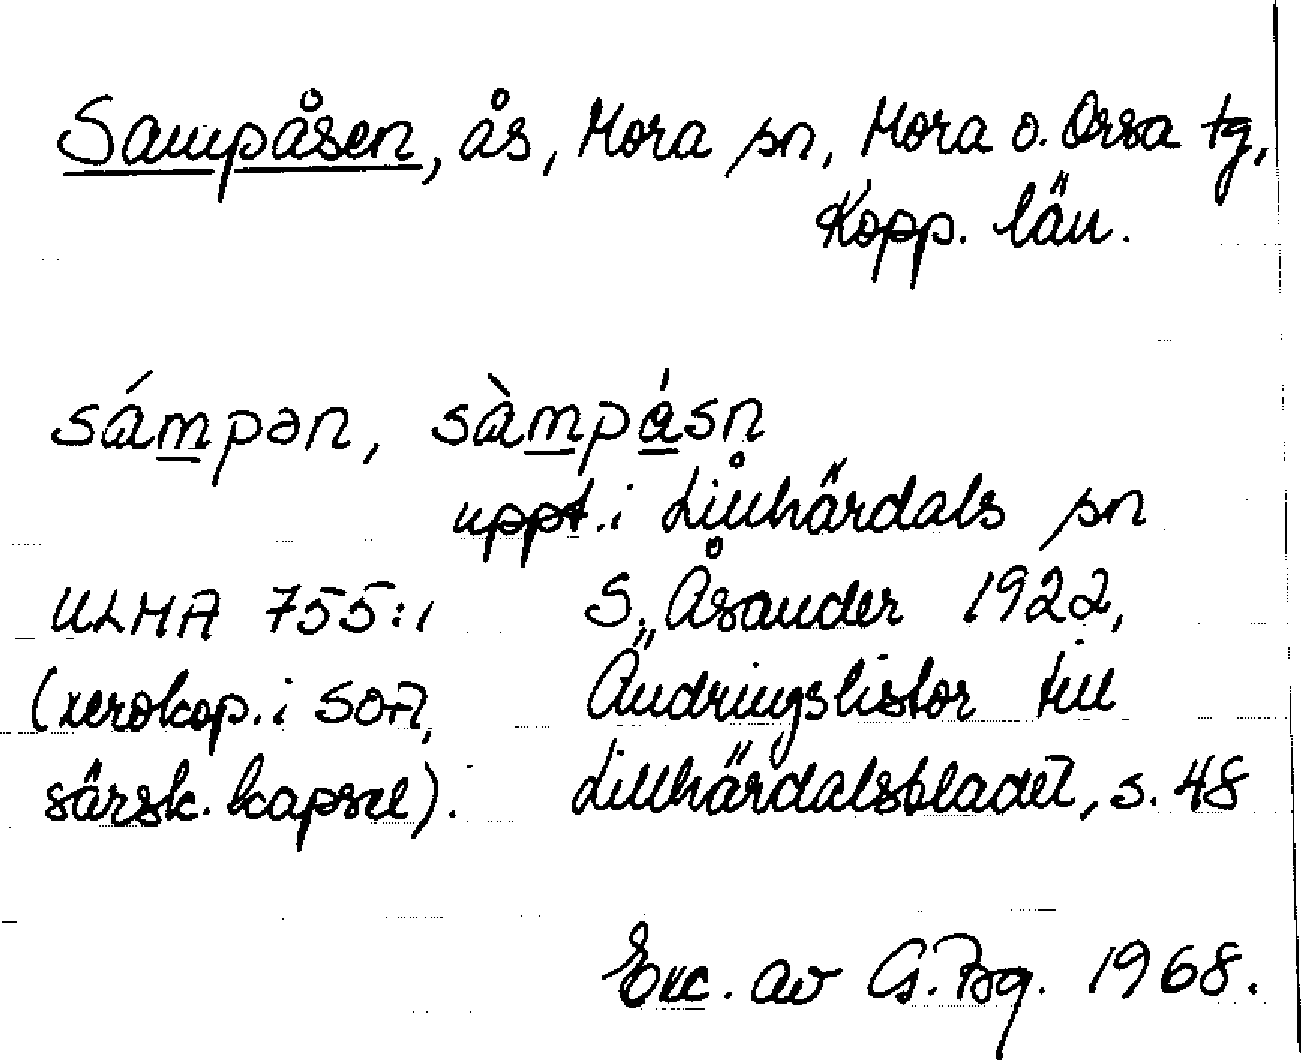 Sampåsen, ås, Mora sn, Mora o. Orsa tg,
Kopp. län.
sámpən, sàmpåsn
uppt. i Lillhärdals sn
ULMA 755:1 S. Åsander 1922,
(xerokop. i SOA, Ändringslistor till
särsk. kapsel). Lillhärdalsbladet, s. 48
Exc. av G. Bg. 1968.